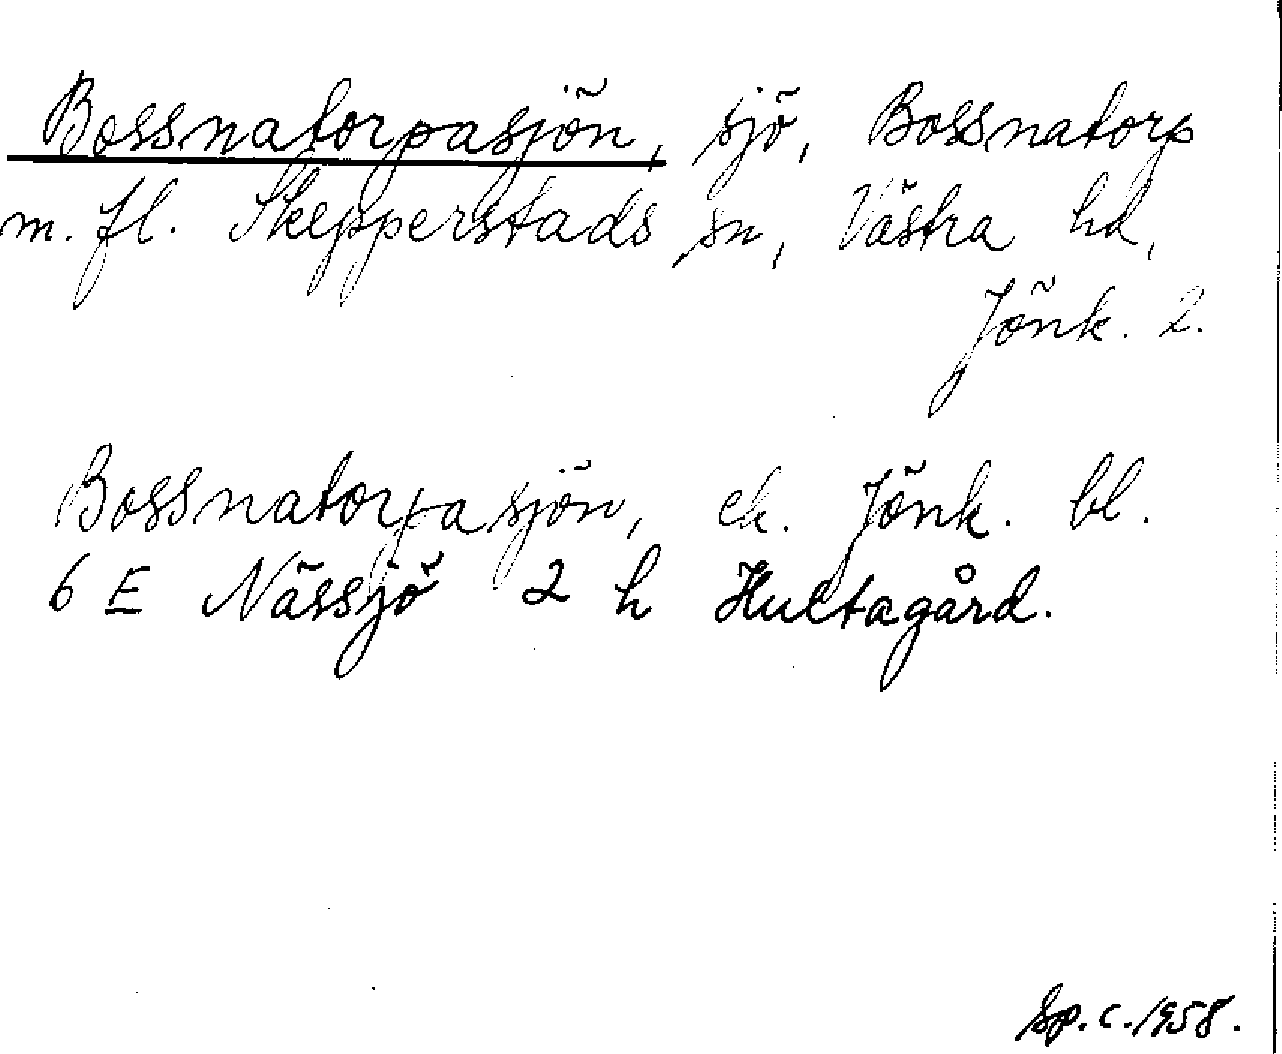 Bossnatorpasjön, sjö, Bossnatorp
m. fl. Skepperstads sn, Västra hd,
Jönk. l.
Bossnatorpasjön, ek. Jönk. bl.
6 E Nässjö 2 h Hultagård.
Sp. c. 1958.